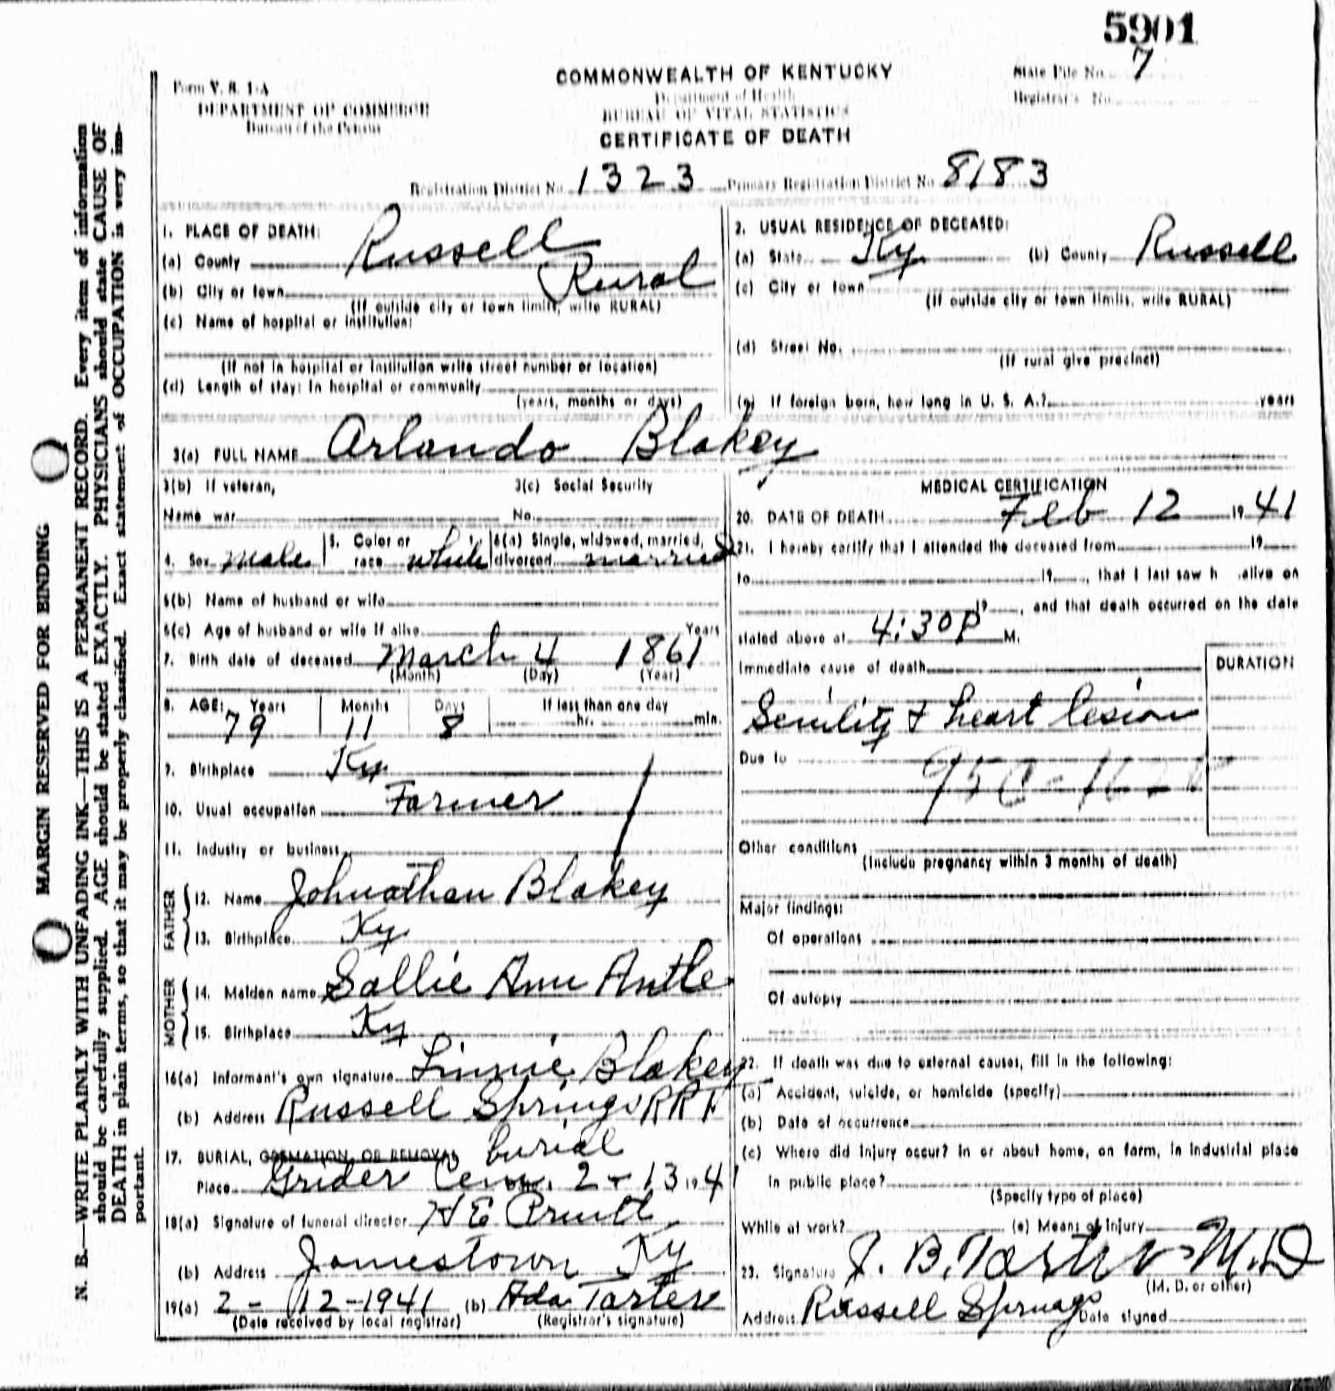 5901
Form V. S. 1-A
DEPARTMENT OF COMMERCE
Bureau of the Census
COMMONWEALTH OF KENTUCKY
Department of Health
BUREAU OF VITAL STATISTICS
CERTIFICATE OF DEATH
State File No. 7
Registrar's No.
Registration District No. 1323 Primary Registration District No. 8183
1. PLACE OF DEATH:
(a) County Russell
(b) City or town Rural
(If outside city or town limits, write RURAL)
(c) Name of hospital or institution:
(If not in hospital or institution write street number or location)
(d) Length of stay: In hospital or community
(years, months or days)
2. USUAL RESIDENCE OF DECEASED:
(a) State Ky (b) County Russell
(c) City or town
(If outside city or town limits, write RURAL)
(d) Street No.
(If rural give precinct)
(e) If foreign born, how long in U. S. A.? years
3(a) FULL NAME Arlando Blakey
3(b) If veteran, 3(c) Social Security
Name war No.
4. Sex male 5. Color or race white 6(a) Single, widowed, married, divorced married
6(b) Name of husband or wife
6(c) Age of husband or wife if alive Years
7. Birth date of deceased March 4 1861
(Month) (Day) (Year)
8. AGE: Years Months Days If less than one day
79 11 8 hr. min.
9. Birthplace Ky
10. Usual occupation Farmer
11. Industry or business
FATHER
12. Name Johnathan Blakey
13. Birthplace Ky
MOTHER
14. Maiden name Sallie Ann Antle
15. Birthplace Ky
16(a) Informant's own signature Linnie Blakey
(b) Address Russell Springs RR
17. BURIAL, CREMATION, OR REMOVAL burial
Place Grider Cem. 2-13 1941
18(a) Signature of funeral director H E Pruitt
(b) Address Jamestown Ky
19(a) 2-12-1941 (b) Ada Tartere
(Date received by local registrar) (Registrar's signature)
MEDICAL CERTIFICATION
20. DATE OF DEATH Feb 12 1941
21. I hereby certify that I attended the deceased from 19
to 19 , that I last saw h alive on
19 , and that death occurred on the date
stated above at 4:30P M.
Immediate cause of death DURATION
Senility & heart lesion
Due to
95C-162
Other conditions
(Include pregnancy within 3 months of death)
Major findings:
Of operations
Of autopsy
22. If death was due to external causes, fill in the following:
(a) Accident, suicide, or homicide (specify)
(b) Date of occurrence
(c) Where did injury occur? In or about home, on farm, in industrial place
in public place?
(Specify type of place)
While at work? (e) Means of Injury
23. Signature J. B. Tarter M.D
(M. D. or other)
Address Russell Springs Date signed
MARGIN RESERVED FOR BINDING
N. B.—WRITE PLAINLY WITH UNFADING INK—THIS IS A PERMANENT RECORD. Every item of information
should be carefully supplied. AGE should be stated EXACTLY. PHYSICIANS should state CAUSE OF
DEATH in plain terms, so that it may be properly classified. Exact statement of OCCUPATION is very im-
portant.